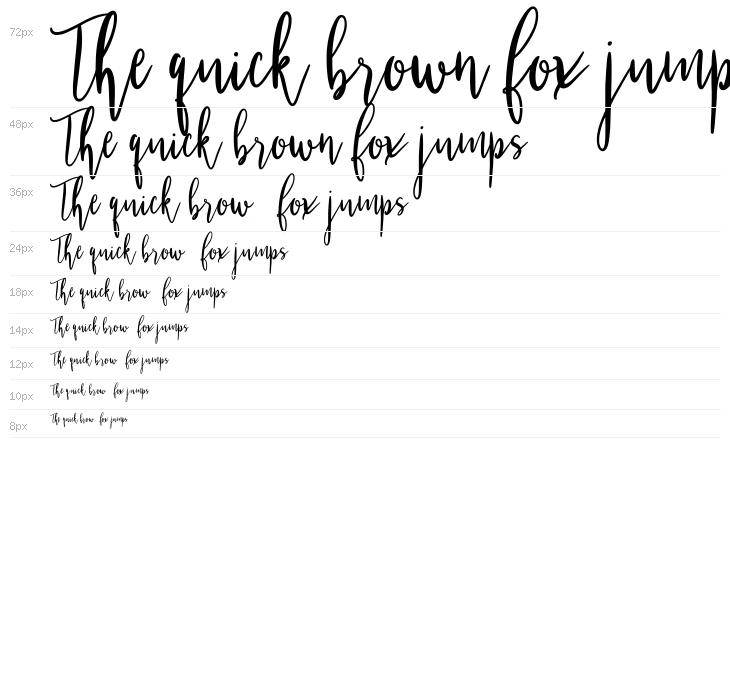 72px The quick brown fox jump
48px The quick brown fox jumps
36px The quick brow fox jumps
24px The quick brow fox jumps
18px The quick brow fox jumps
14px The quick brow fox jumps
12px The quick brow fox jumps
10px The quick brow fox jumps
8px The quick brow fox jumps